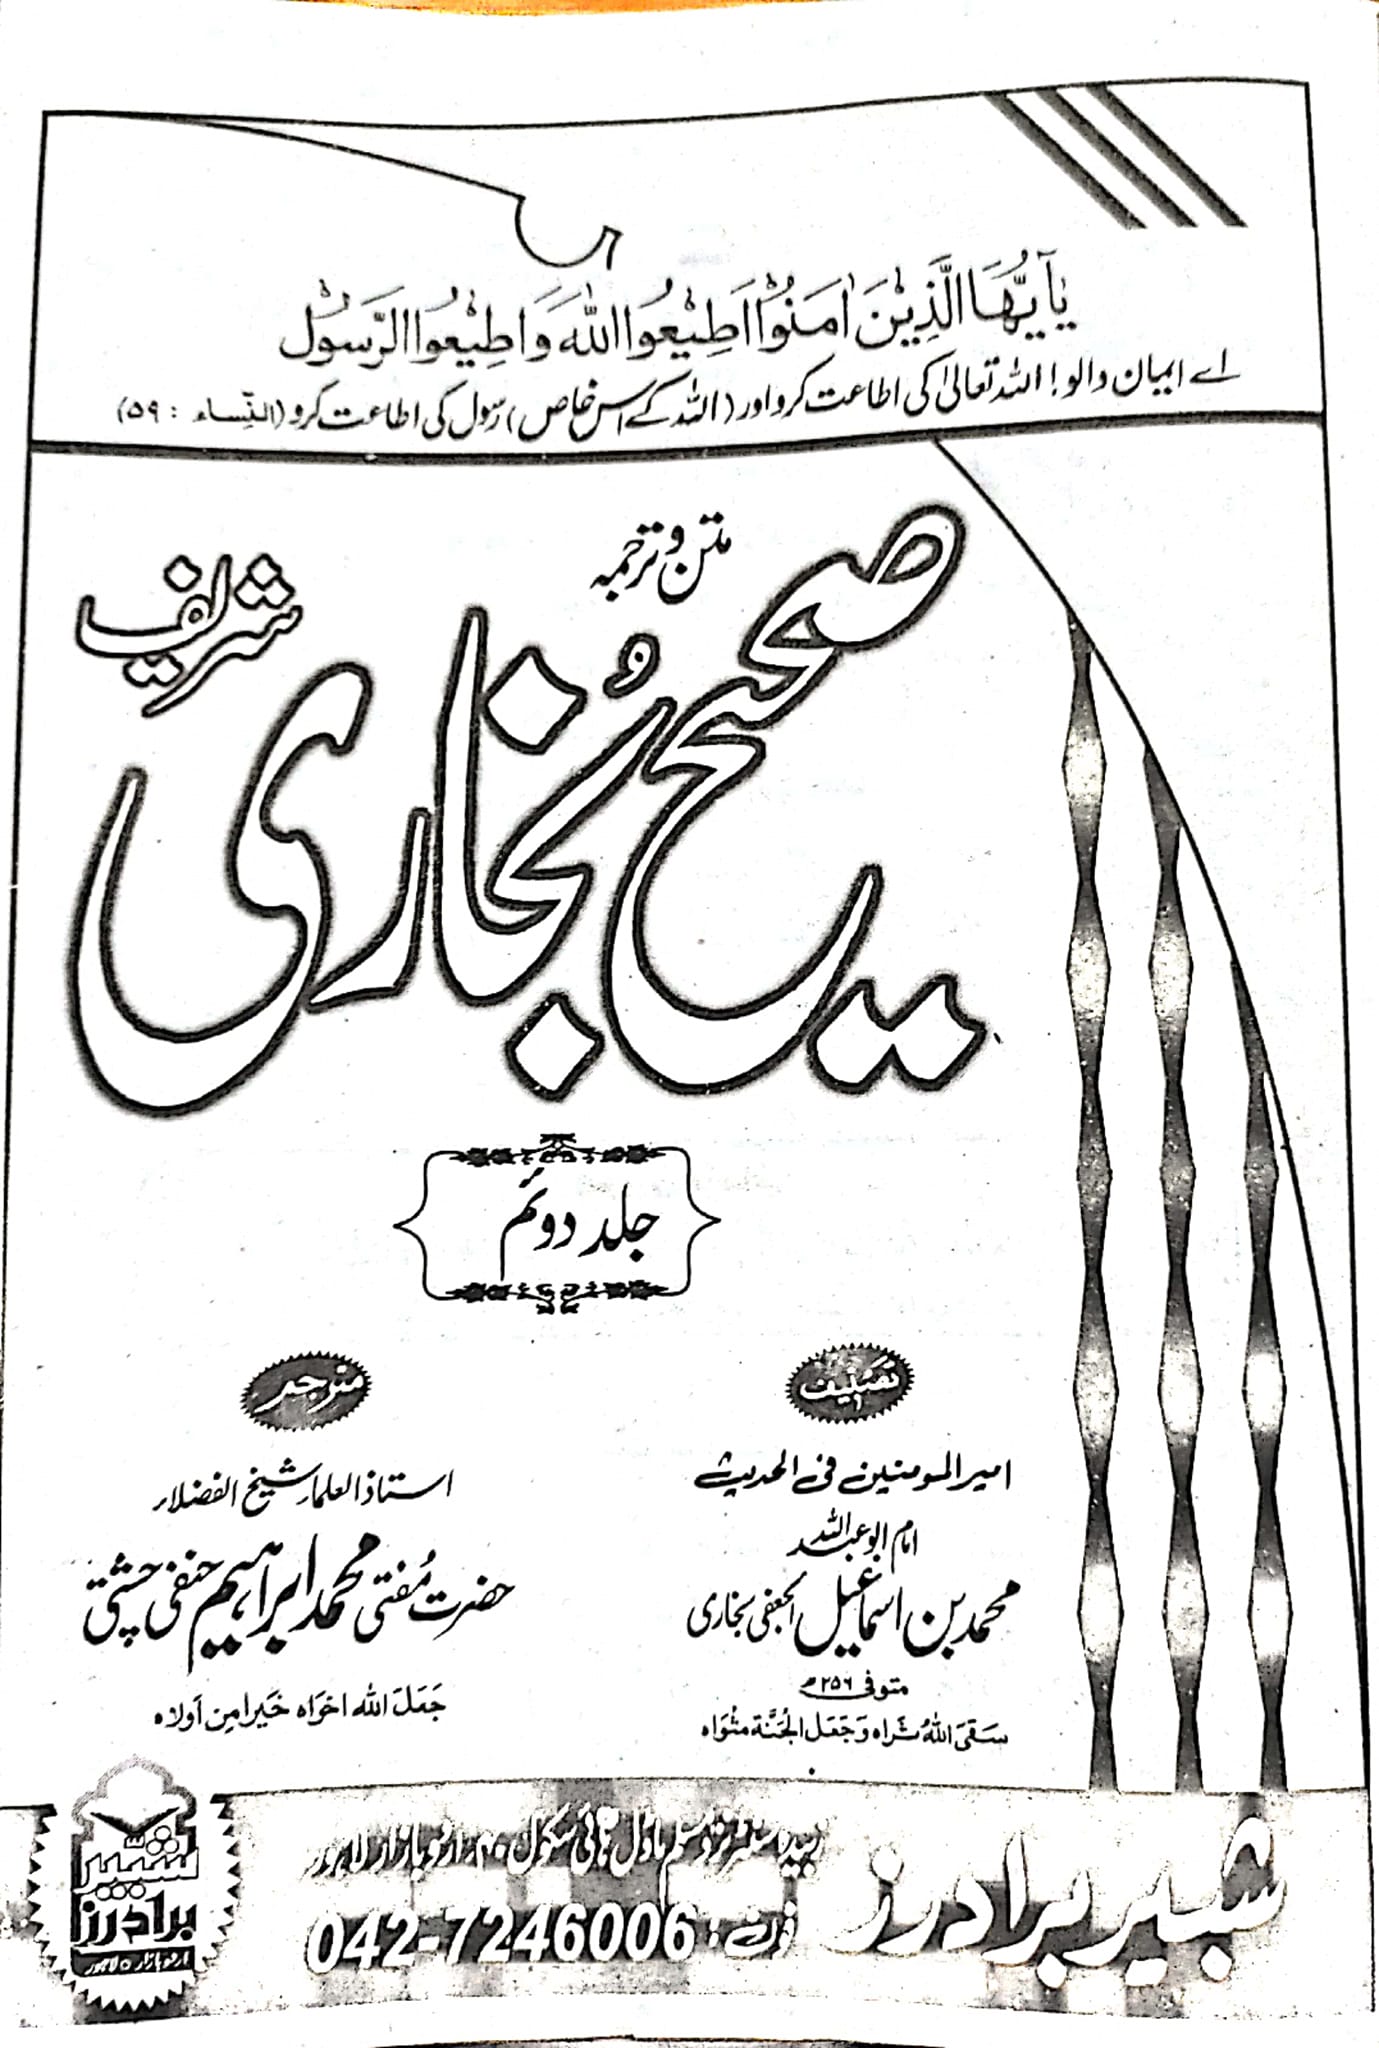 يٰٓاَيُّهَا الَّذِيْنَ اٰمَنُوْا اَطِيْعُوا اللّٰهَ وَ اَطِيْعُوا الرَّسُوْلَ
اے ایمان والو! اللہ تعالیٰ کی اطاعت کرو اور (اللہ کے اس خاص) رسول کی اطاعت کرو (النِّساء : ۵۹)
متن و ترجمہ
صحیح بُخاری شریف
جلد دوئم
تصنیف
امیر المومنین فی الحدیث
امام ابو عبداللہ
محمد بن اسماعیل الجعفی بخاری
متوفی ۲۵۶ھ
سَقَى اللّٰهُ ثَراه وَجَعَلَ الجَنَّة مَثْوَاه
مترجم
استاذ العلماء شیخ الفضلاء
حضرت مُفتی محمد ابراہیم حنفی چشتی
جَعَلَ اللّٰه اخرَاه خَيرا مِن اَولاه
شبیر برادرز
زبیدہ سنٹر نزد مسلم ماڈل ہائی سکول ۴۰ اردو بازار لاہور
فون: 042-7246006
شبّیر
برادرز
اردو بازار ○ لاہور